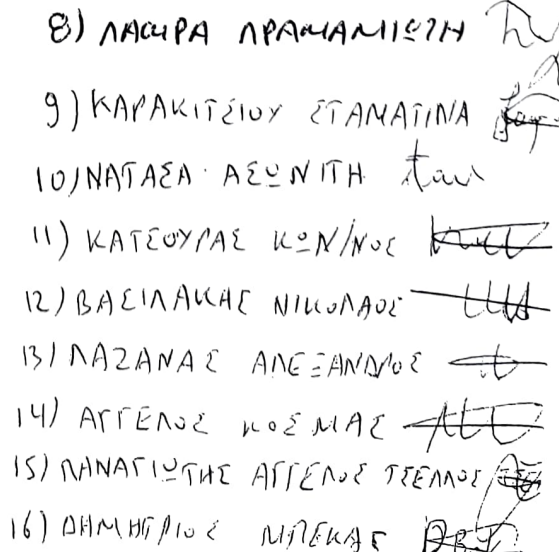 8) ΛΑΜΠΡΑ ΠΡΑΜΑΝΙΩΤΗ
9) ΚΑΡΑΚΙΤΣΙΟΥ ΣΤΑΜΑΤΙΝΑ
10) ΝΑΤΑΣΑ ΑΣΩΝΙΤΗ
11) ΚΑΤΣΟΥΡΑΣ ΚΩΝ/ΝΟΣ
12) ΒΑΣΙΛΑΚΗΣ ΝΙΚΟΛΑΟΣ
13) ΛΑΖΑΝΑΣ ΑΛΕΞΑΝΔΡΟΣ
14) ΑΓΓΕΛΟΣ ΚΟΣΜΑΣ
15) ΠΑΝΑΓΙΩΤΗΣ ΑΓΓΕΛΟΣ ΤΣΕΛΛΟΣ
16) ΔΗΜΗΤΡΙΟΣ ΜΠΕΚΑΣ